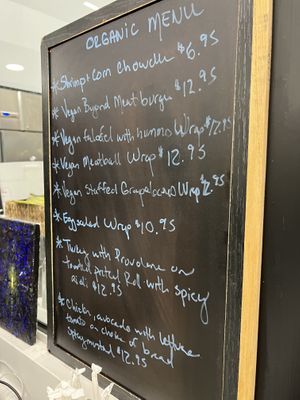 ORGANIC MENU
* Shrimp & Corn Chowder $6.95
* Vegan Beyond Meat burger $12.95
* Vegan falafel with hummus Wrap $12.95
* Vegan Meatball Wrap $12.95
* Vegan Stuffed Grapeleaves Wrap
* Eggsalad Wrap $10.95
* Turkey with Provolone on
Roll with spicy
aioli $12.95
* Chicken, avocado with lettuce
tomato on choice of bread
$12.95